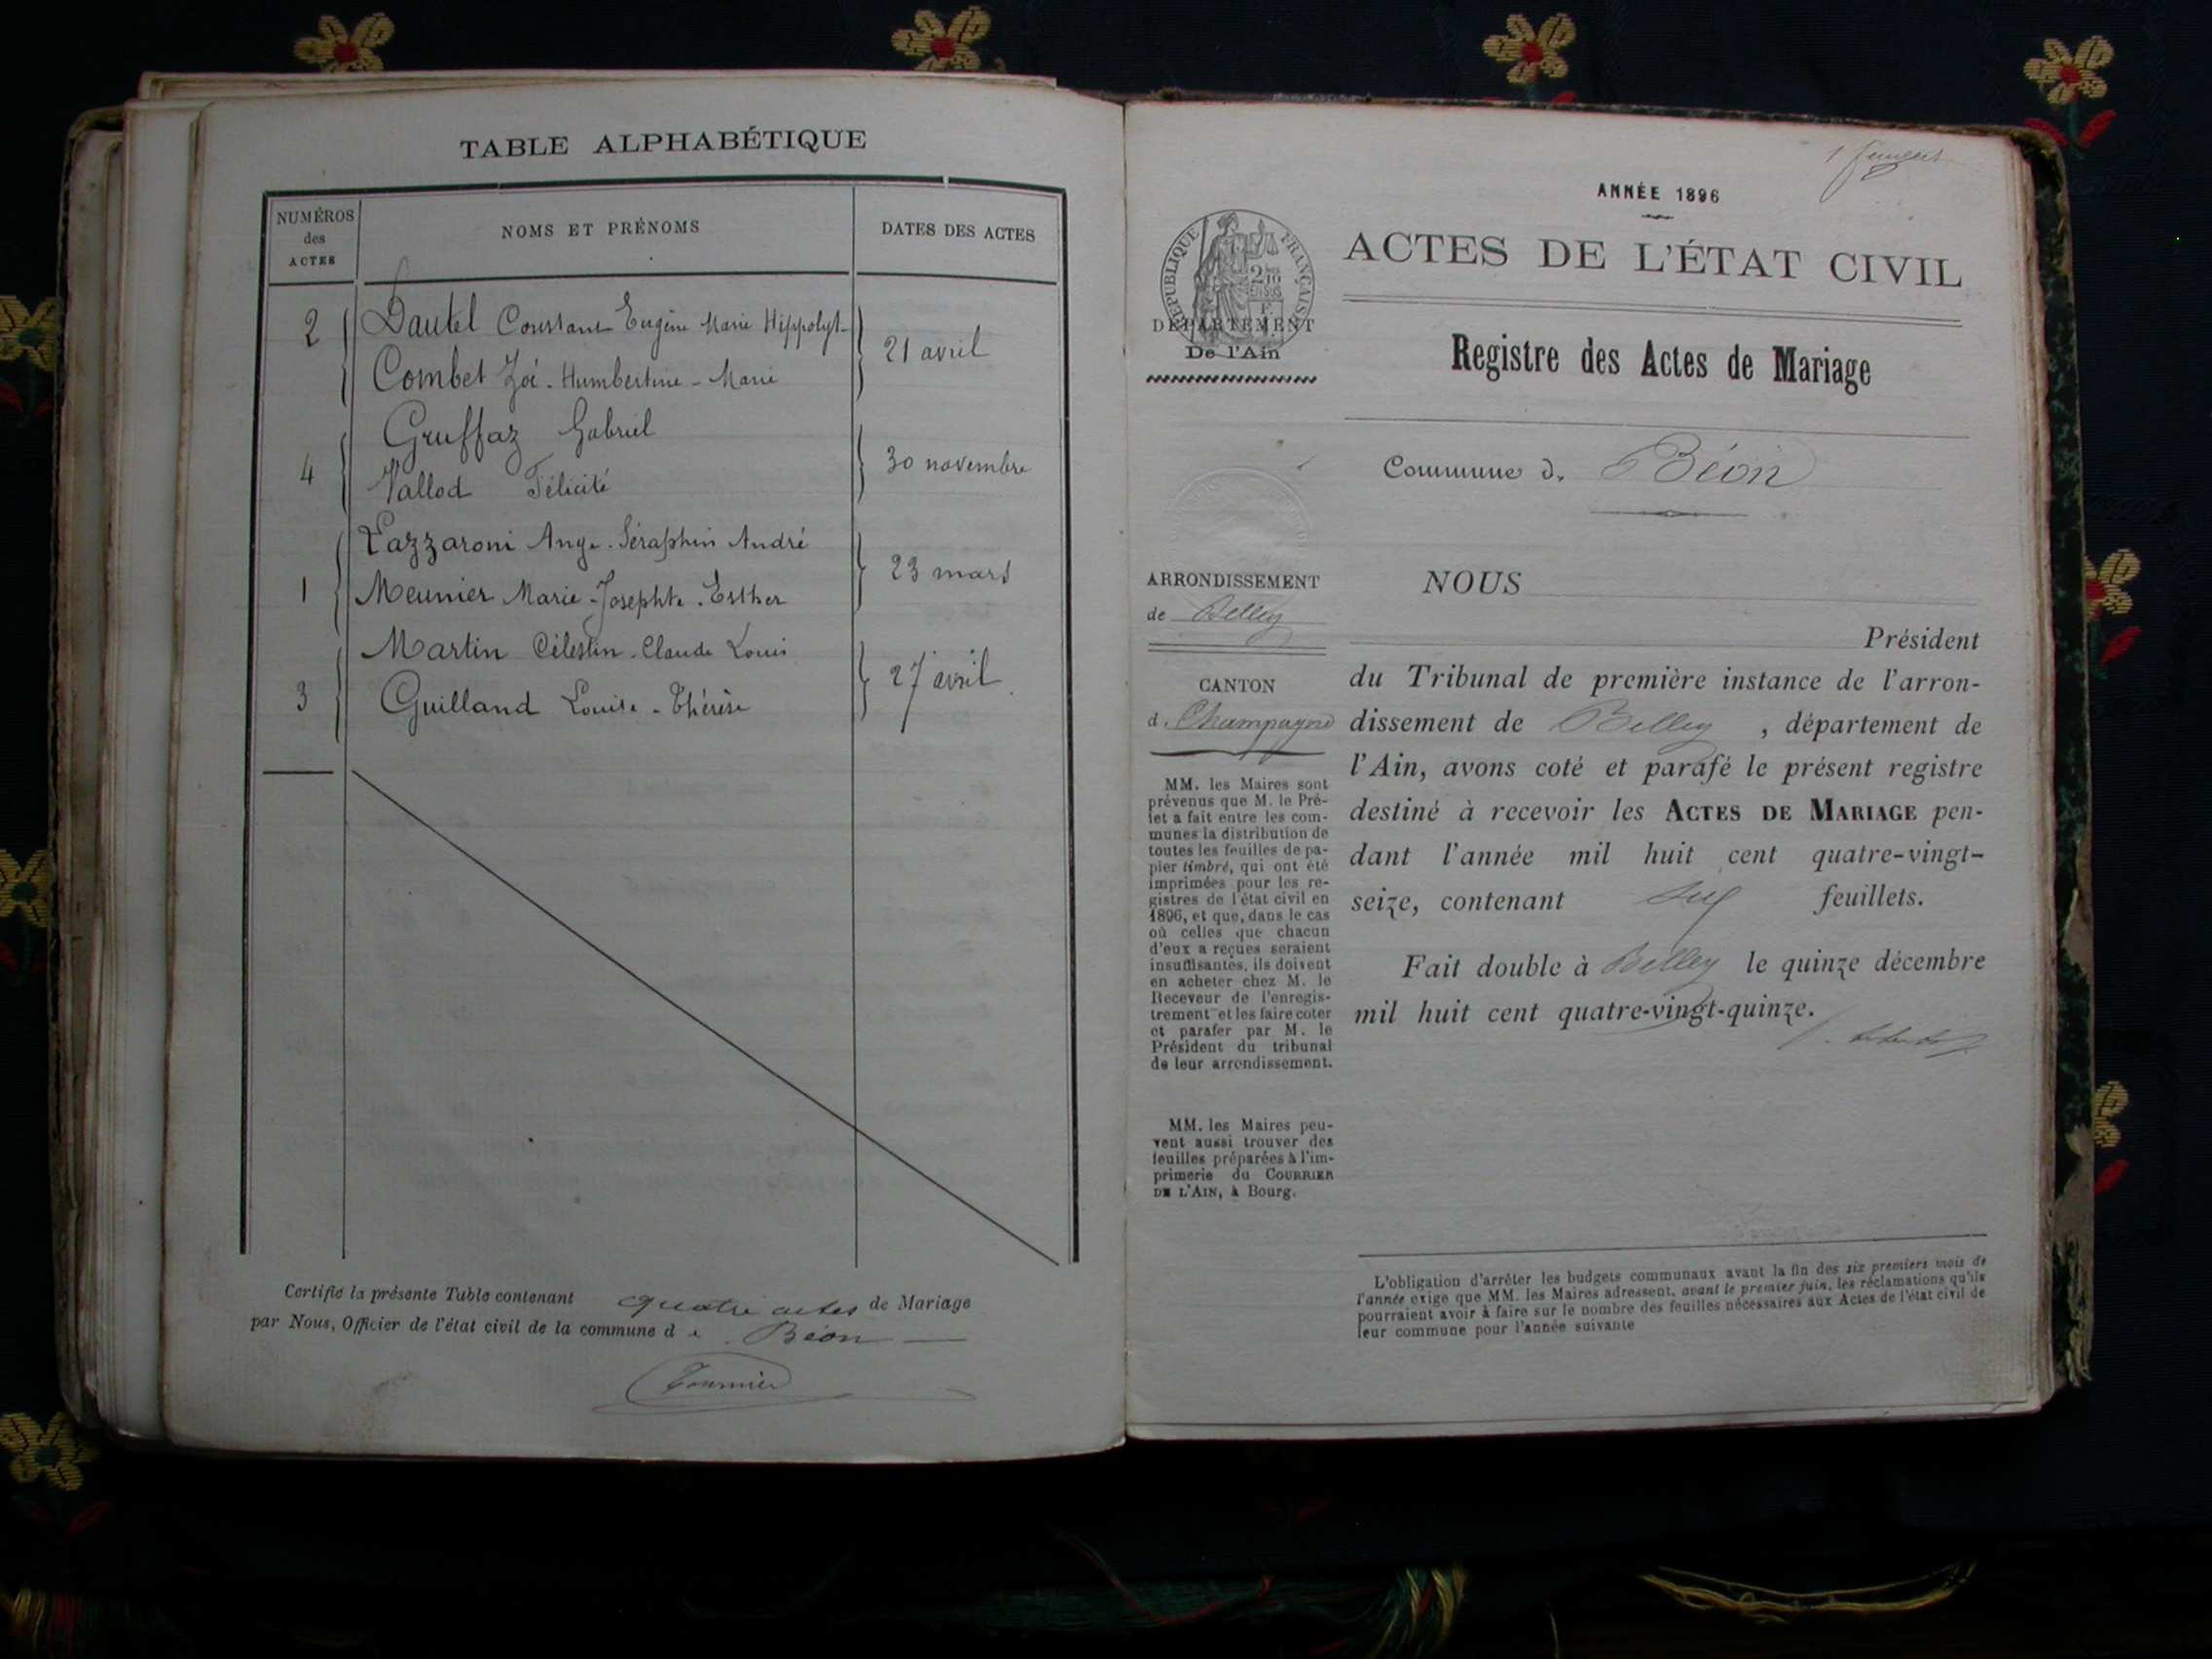 TABLE ALPHABÉTIQUE
NUMÉROS
des
ACTES
NOMS ET PRÉNOMS
DATES DES ACTES
2
Dautel Constant Eugène Marie Hippolyt
21 avril
Combet Zoé - Humbertine - Marie
Gruffaz Gabriel
4
30 novembre
Vallod Félicité
Lazzaroni Ange - Séraphin André
1
23 mars
Meunier Marie - Josephte - Esther
Martin Célestin - Claude Louis
3
27 avril
Guilland Louise - Thérèse
Certifié la présente Table contenant quatre actes de Mariage
par Nous, Officier de l'état civil de la commune d e Béon
1
ANNÉE 1896
ACTES DE L'ÉTAT CIVIL
RÉPUBLIQUE FRANÇAISE
2/10 EN SUS
DÉPARTEMENT
De l'Ain
Registre des Actes de Mariage
Commune d. Béon
ARRONDISSEMENT
de Belley
CANTON
d. Champagne
MM. les Maires sont
prévenus que M. le Pré-
fet a fait entre les com-
munes la distribution de
toutes les feuilles de pa-
pier timbré, qui ont été
imprimées pour les re-
gistres de l'état civil en
1896, et que, dans le cas
où celles que chacun
d'eux a reçues seraient
insuffisantes, ils doivent
en acheter chez M. le
Receveur de l'enregis-
trement et les faire coter
et parafer par M. le
Président du tribunal
de leur arrondissement.
MM. les Maires peu-
vent aussi trouver des
feuilles préparées à l'im-
primerie du COURRIER
DE L'AIN, à Bourg.
NOUS
Président
du Tribunal de première instance de l'arron-
dissement de Belley , département de
l'Ain, avons coté et parafé le présent registre
destiné à recevoir les ACTES DE MARIAGE pen-
dant l'année mil huit cent quatre-vingt-
seize, contenant feuillets.
Fait double à Belley le quinze décembre
mil huit cent quatre-vingt-quinze.
L'obligation d'arrêter les budgets communaux avant la fin des six premiers mois de
l'année exige que MM. les Maires adressent, avant le premier juin, les réclamations qu'ils
pourraient avoir à faire sur le nombre des feuilles nécessaires aux Actes de l'état civil de
leur commune pour l'année suivante